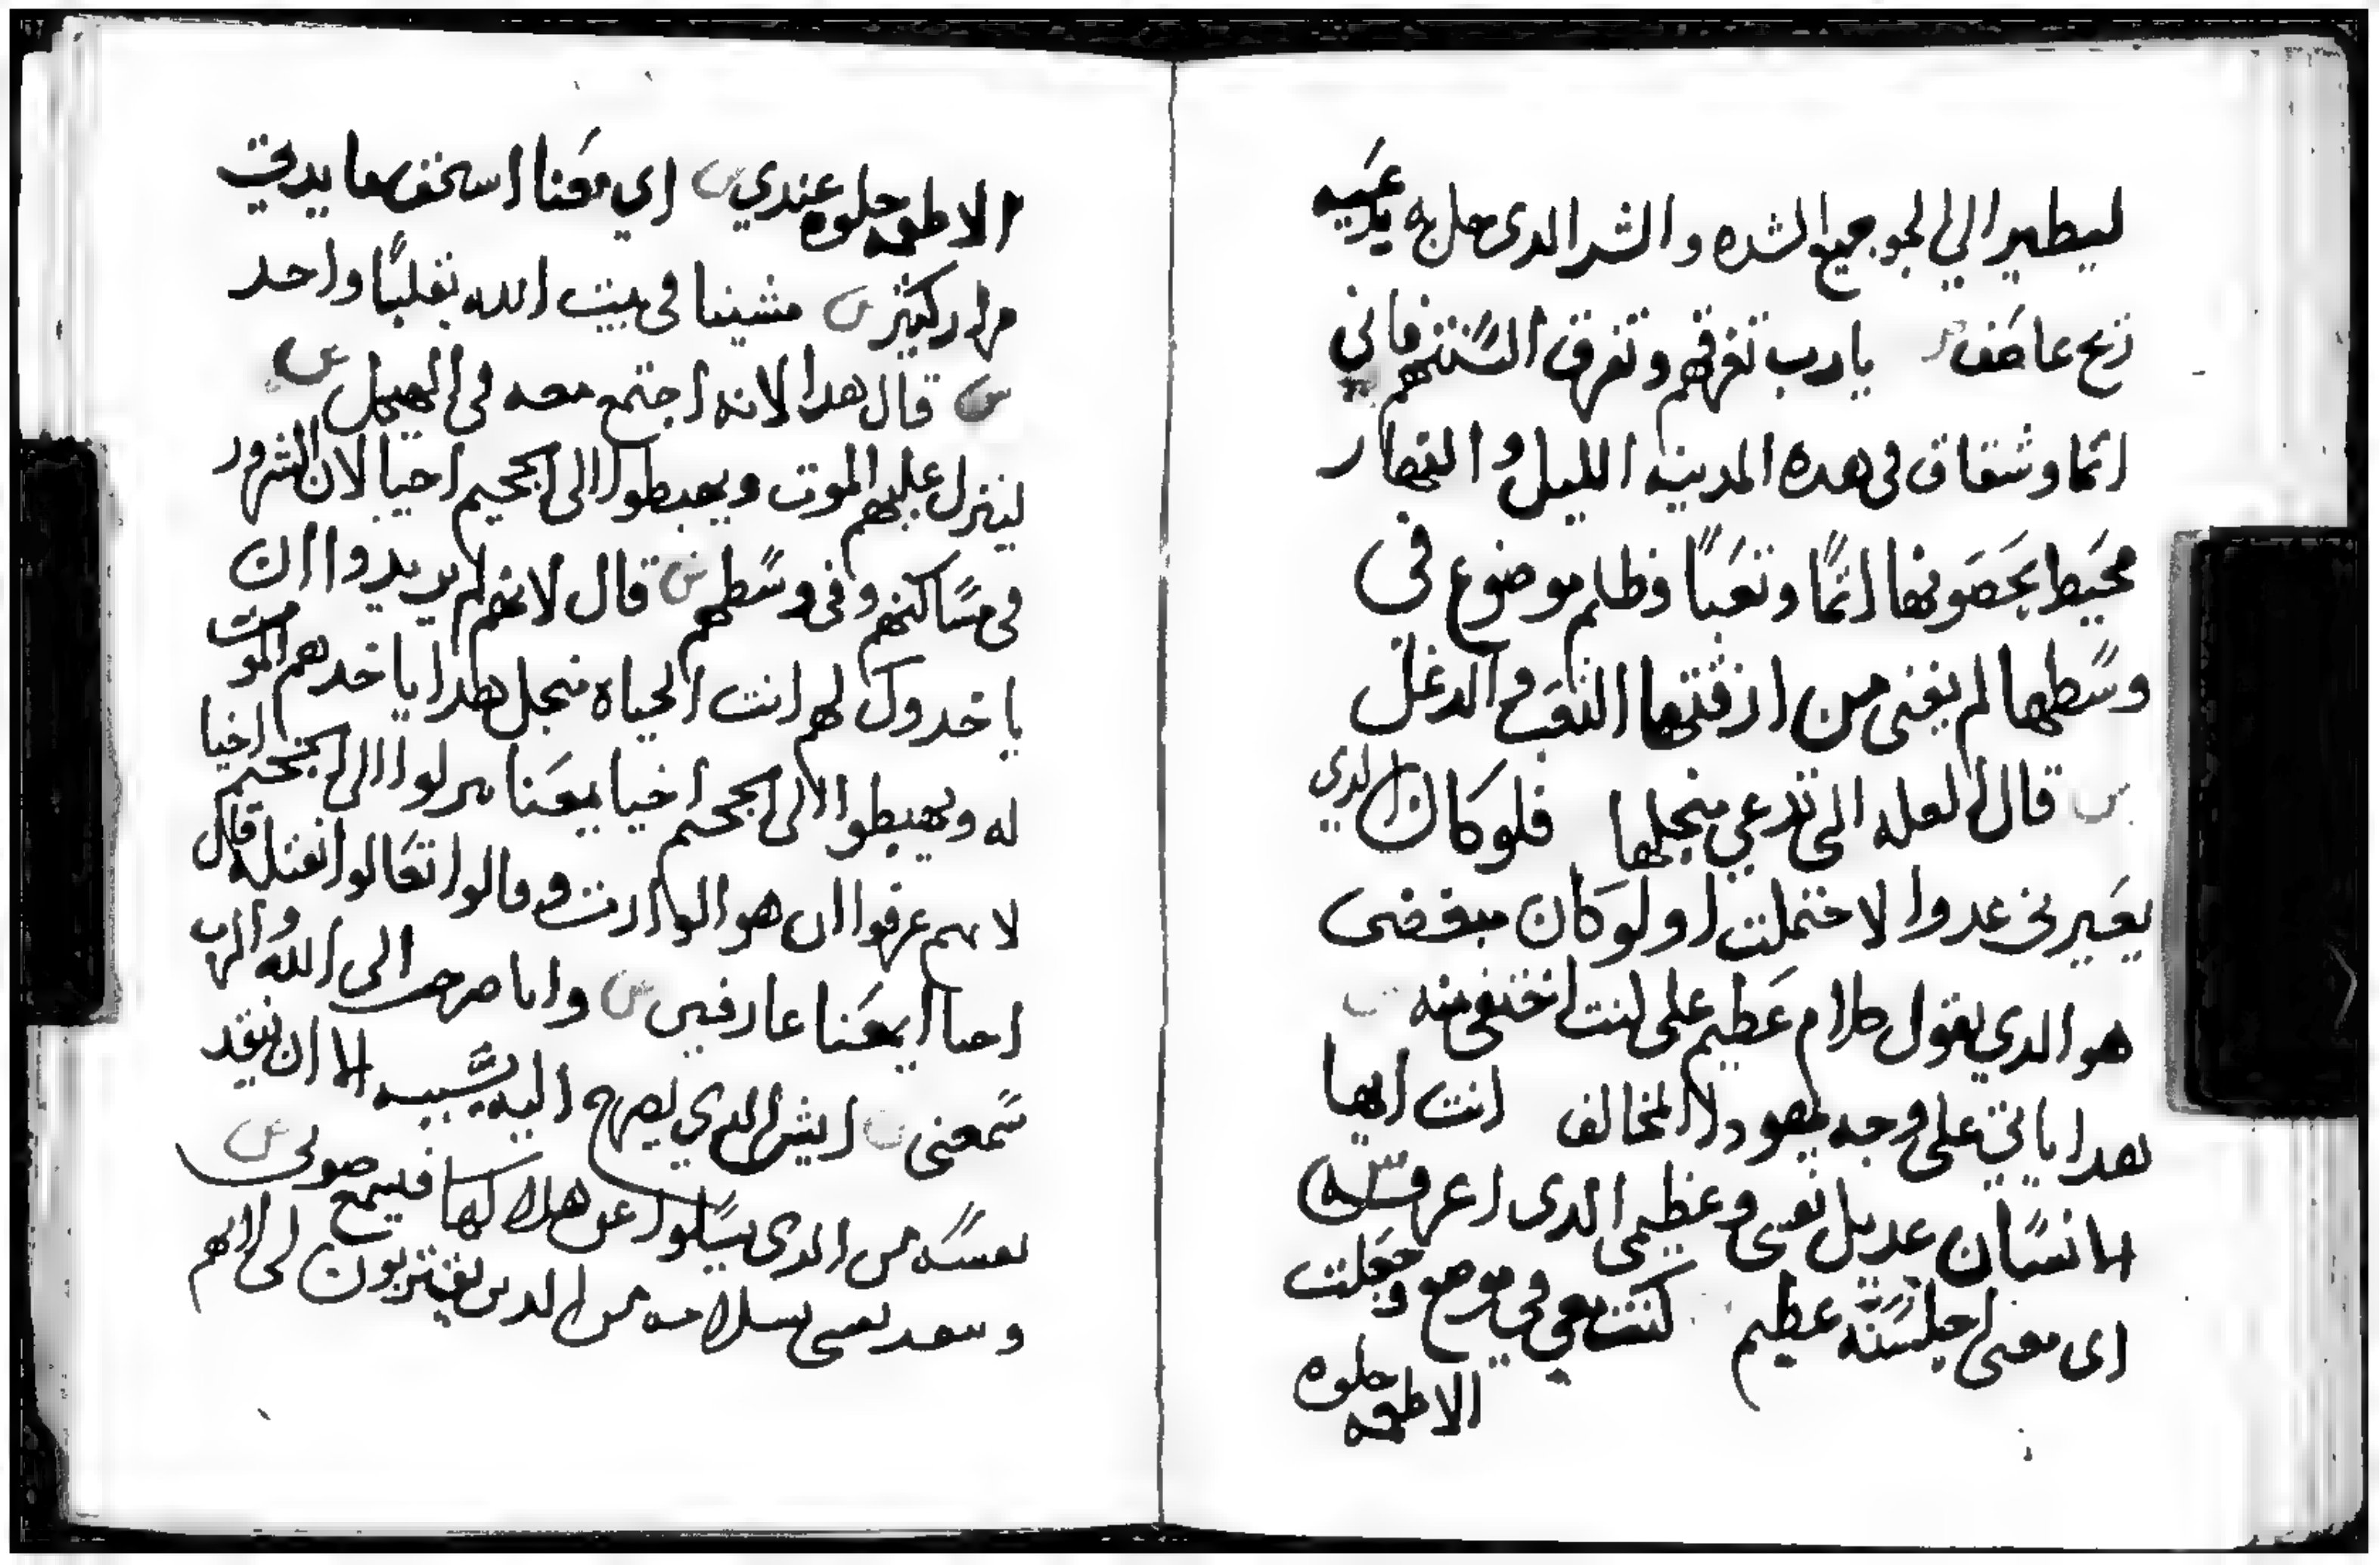 ليطير الي الجو جميع الشده والشر الدى حل به يدعيه
ريح عاصف يارب تغرقهم وتفرق السنتهم فاني
اثما وشقاق فى هده المدينه الليل والنهار
محيط بحصونها اثمًا وتعبًا وظلم موضوع في
وسًطها لم يفنى من ازقتها التعب والدغل
س قال العله التى تدعي منجلها فلو كان الدي
يعيرنى عدوا لاحتملت اولو كان مبغضى
هو الدي يقول كلام عظيم على لنت اختفى منه
هدا ياتي على وجه يهودا المخالف انت ايها
الانسًان عديل نفسى وعظيمى الدى اعرفه س
اى معنى جلسته عظيم كنت معي في موضع وجعلت
الاطعمه حلوه
الاطعمه حلوه عندي س اي معنا اسحق ما يدى
مرار كثير س مشينا فى بيت الله بقلبًا واحد
س قال هدا لانه اجتمع معه فى الهيكل س
لينزل عليهم الموت ويهبطوا الى الجحيم احيا لان الشرور
فى مسًاكنهم وفى وسًطهم س قال لانهم لم يريدوا ان
ياخدوك لهم انت الحياه منجل هدا ياخدهم الموت
له ويهبطوا الى الجحيم احيا بمعنا نزلوا الى الجحيم احيا
لانهم عرفوا ان هو الوارث وقالوا تعالوا نقتله قال
احيا بمعنا عارفين س وانا صرخت الى الله والرب
سًمعنى س ايش الدي يصرخ اليه بسببه الا ان ينقد
نفسًه من الدى يسًلوا عن هلاكها فيسمع صوتى س
وينقد نفسى بسلامه من الدين يقتربون لى لانهم